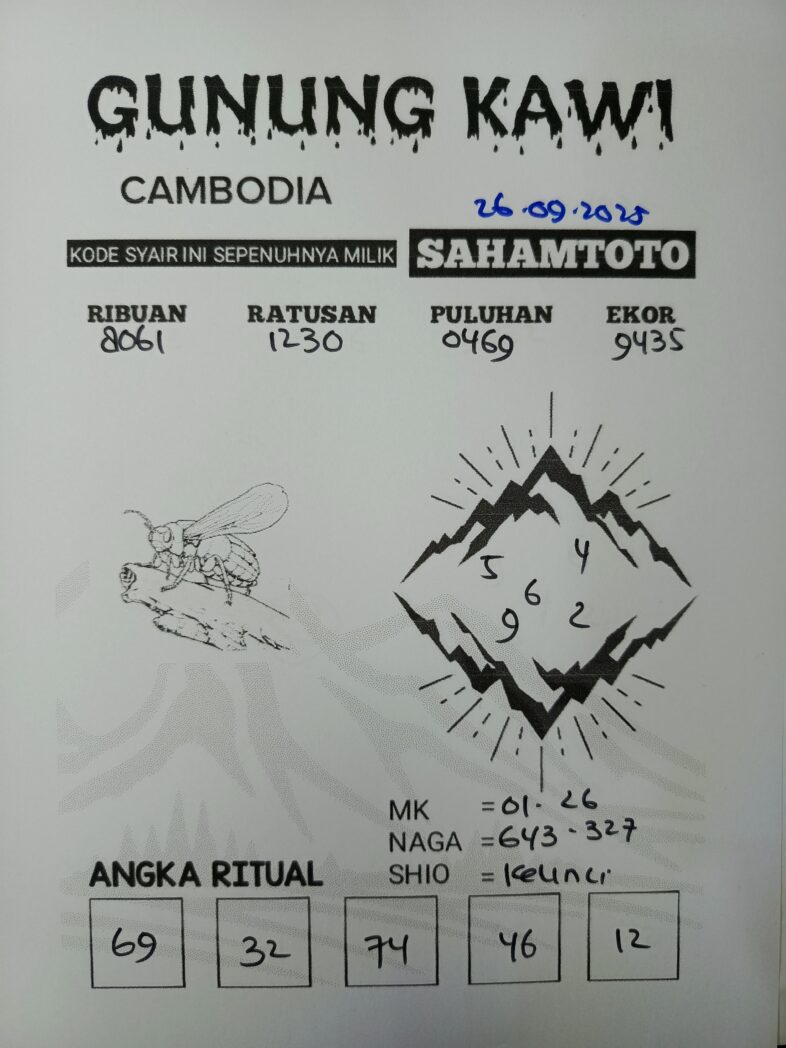 GUNUNG KAWI
CAMBODIA
26.09.2025
KODE SYAIR INI SEPENUHNYA MILIK SAHAMTOTO
RIBUAN RATUSAN PULUHAN EKOR
8061 1230 0469 9435
5 4
6
9 2
MK = 01. 26
NAGA = 643 - 327
SHIO = Kelinci
ANGKA RITUAL
69 32 74 46 12